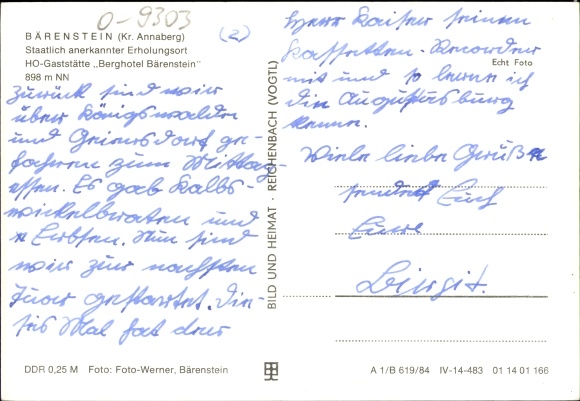 0-9303
(2)
BÄRENSTEIN (Kr. Annaberg)
Staatlich anerkannter Erholungsort
HO-Gaststätte „Berghotel Bärenstein"
898 m NN
Zurück sind wir
über Königswalde
und Geiersdorf ge-
fahren zum Mittag-
essen. Es gab Kalbs-
wickelbraten und
Erbsen. Nun sind
wir zur nächsten
Tour gestartet. Die-
ses Mal hat den
BILD UND HEIMAT · REICHENBACH (VOGTL)
Herr Kaiser seinen
Kassetten-Recorder
Echt Foto
mit und so lerne ich
die Augustusburg
kennen.
Viele liebe Grüße
sendet Euch
Eure
Birgit.
DDR 0,25 M Foto: Foto-Werner, Bärenstein
A 1/B 619/84 IV-14-483 01 14 01 166